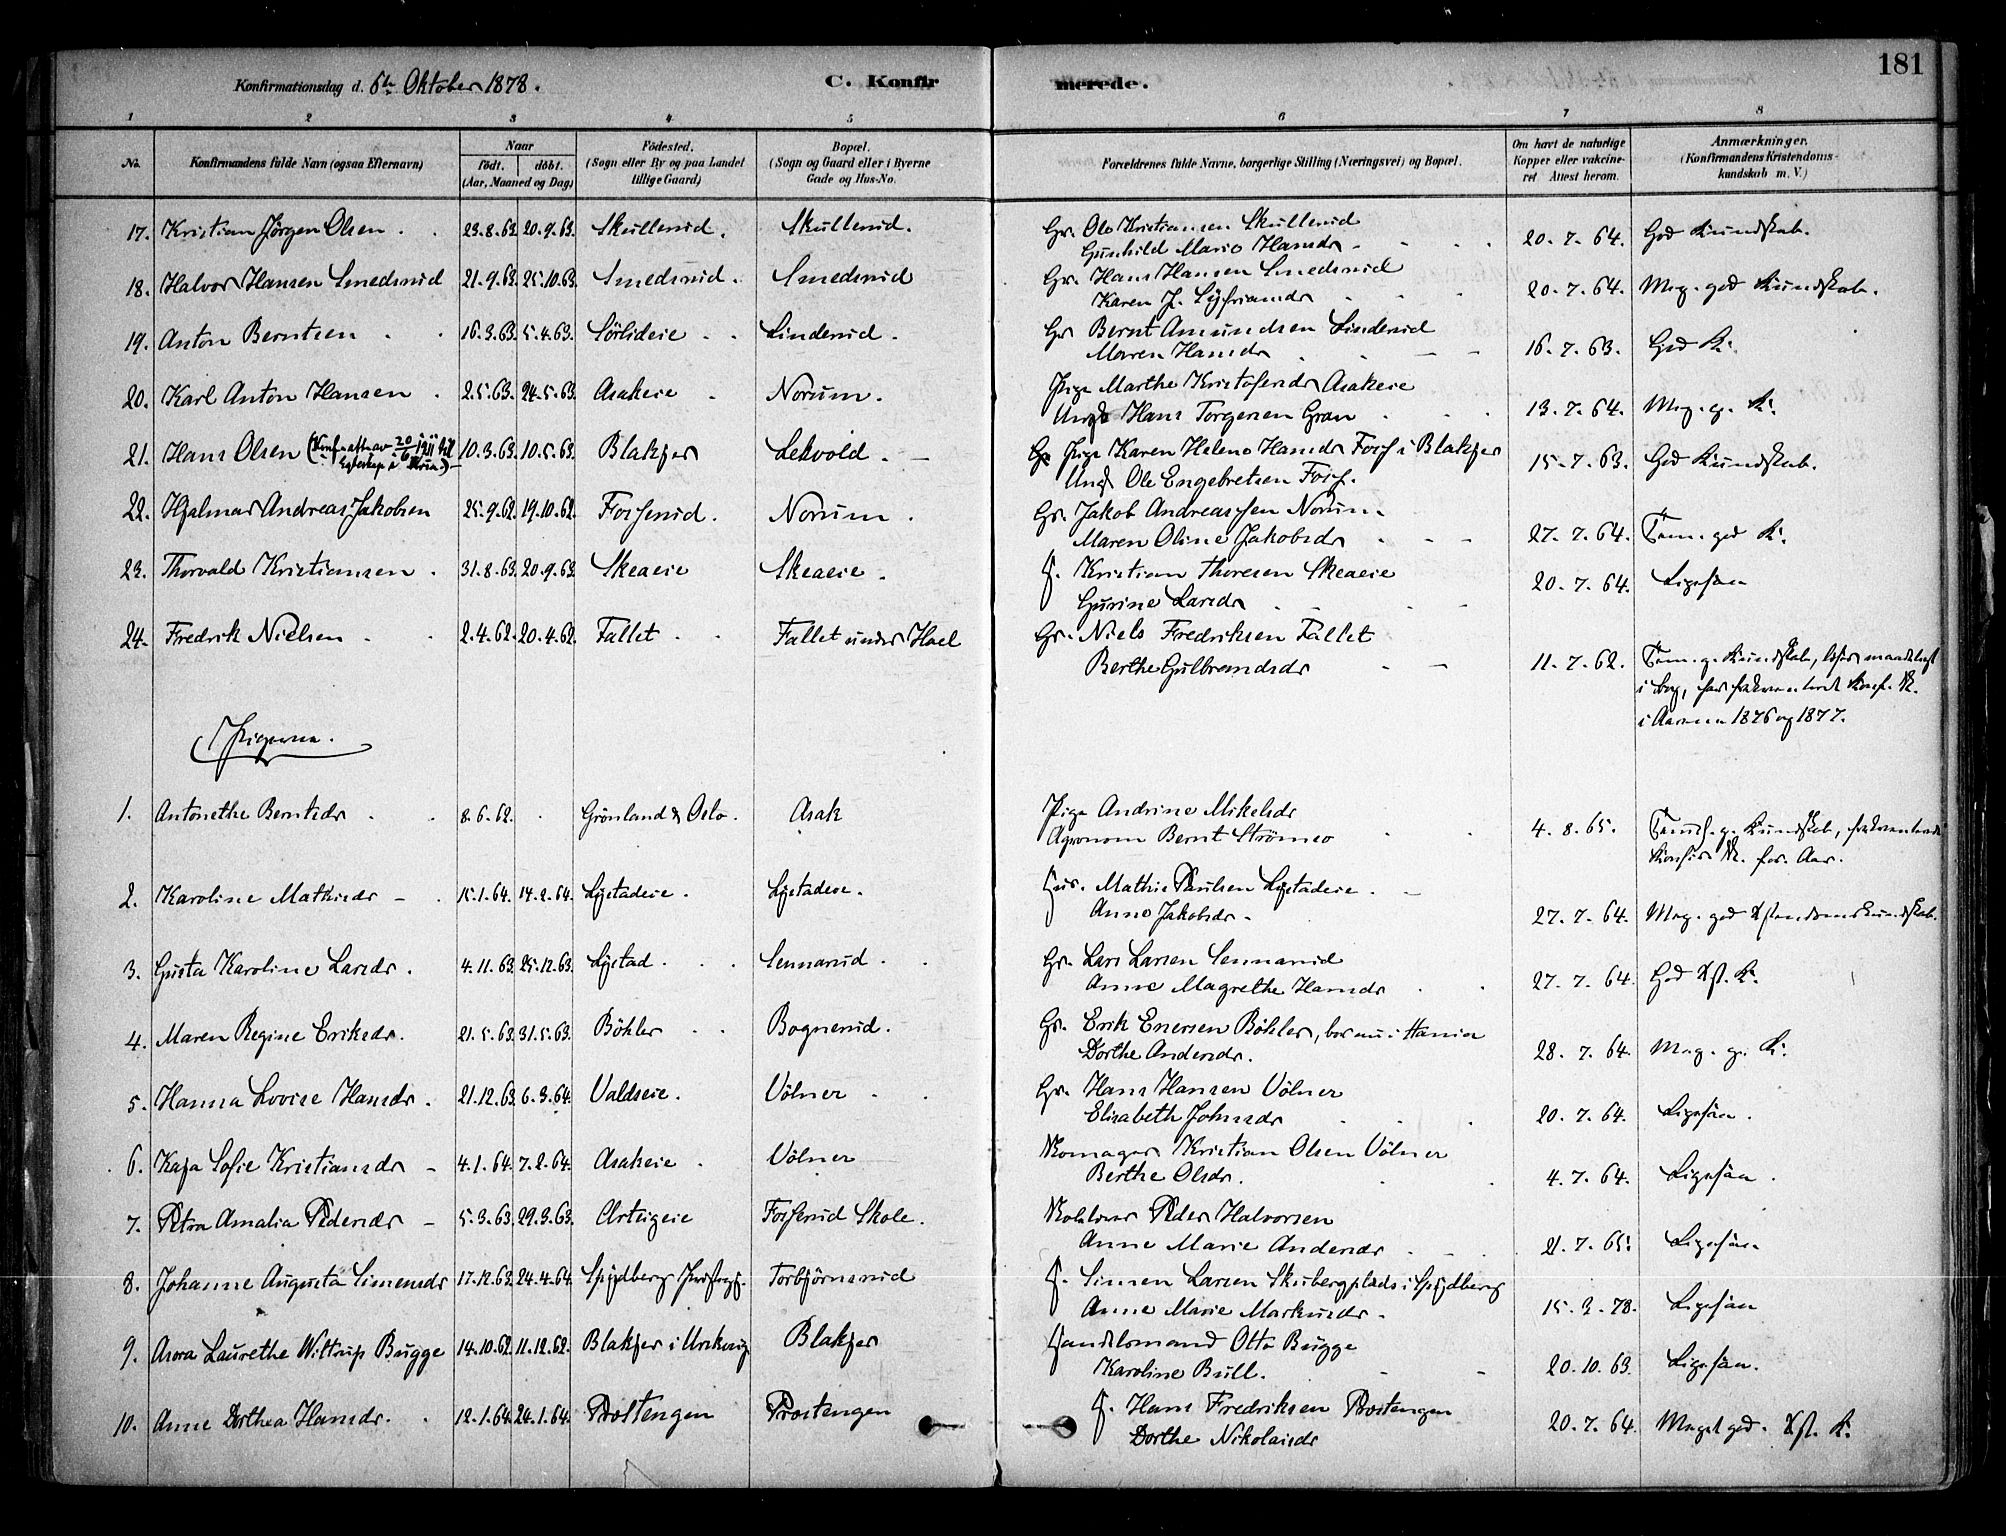 181
Konfirmationsdag d. 6te Oktober 1878. C. Konfir merede.
1 2 3 4 5 6 7 8
No. Konfirmandens fulde Navn (ogsaa Efternavn) Naar født. døbt. (Aar, Maaned og Dag) Fødested. (Sogn eller By og paa Landet tillige Gaard) Bopæl. (Sogn og Gaard eller i Byerne Gade og Hus-No. Forældrenes fulde Navne, borgerlige Stilling (Næringsvei) og Bopæl. Om havt de naturlige Kopper eller vakcineret Attest herom. Anmærkninger. (Konfirmandens Kristendomskundskab m. V.)
17. Kristian Jørgen Olsen 23.8.63 20.9.63. Skullerud. Skullerud. Gr. Ole Kristiansen Skullerud
Gunhild Marie Hansdr 20.7.64. God Kundskab.
18. Halvor Hansen Smedsrud 21.9.63 25.10.63. Smedsrud. Smedsrud Gr. Hans Hansen Smedsrud
Karen J. 20.7.64. Meg. god Kundskab.
19. Anton Berntsen 16.3.63. 5.4.63. Sörlideie Linderud. Gr Bernt Amundsen Linderud
Maren Hansdr 16.7.63. God K.
20. Karl Anton Hansen 2.5.63. 24.5.63. Asakeie Norum. Pige Marthe Kristofersdr Asakeie
Ungk Hans Torgersen Gran 13.7.64. Meg. g. K.
21. Hans Olsen (Konf. att. av 20/6 1911 til 10.3.63. 10.5.63. Blakjer Lekvold. Pige Karen Helene Hansdr Foss i Blakjer
Ungk Ole Engebretsen Foss. 15.7.63. God Kundskab.
22. Hjalmar Andreas Jakobsen 25.9.62. 19.10.62. Fosserud. Norum. Gr. Jakob Andreassen Norum
Maren Oline Jakobsdr 27.7.64. Tem. god K.
23. Thorvald Kristiansen 31.8.63. 20.9.63. Skeaeie Skeaeie. F. Kristian Thoresen Skeaeie
Gurine Larsdr 20.7.64. Ligesaa
24. Fredrik Nielsen 2.4.62. 20.4.62. Fallet Fallet under Hoel Gr. Niels Fredriksen Fallet
Berthe Gulbrandsdr 11.7.62. Tem. g. Kundskab, læser maadeligt
i bog, har frekventeret Konf. K.
i Aarene 1876 og 1877.
Pigerne.
1. Antonethe Berntsdr 8.6.62. Grönland & Oslo. Asak Pige Andrine Mikelsdr
Agronom Bernt Strömer 4.8.65. Teml. g. Kundskab, frekventerede
Konfir. K. for. Aar.
2. Karoline Mathisdr 15.1.64. 14.2.64. Lystadeie. Lystadeie. Hus. Mathis Paulsen Lystadeie
Anne Jakobsdr. 27.7.64. Meg. god Xstendomskundskab.
3. Gusta Karoline Larsdr. 4.11.63. 25.12.63. Lystad Sennarud Gr. Lars Larsen Sennarud
Anne Magrethe Hansdr 27.7.64. God Xst. K.
4. Maren Regine Eriksdr. 21.5.63. 31.5.63. Böhler Bognerud. Gr. Erik Enersen Böhler, bor nu i Hania
Dorthe Andersdr. 28.7.64. Meg. g. K.
5. Hanna Lovise Hansdr. 21.12.63. 6.3.64. Valdseie. Völner Gr. Hans Hansen Völner
Elizabeth Johnsdr 20.7.64. Ligesaa.
6. Kaja Sofie Kristiansdr 4.1.64. 7.2.64. Asakeie Völner Skomager Kristian Olsen Völner
Berthe Olsdr. 4.7.64. Ligesaa.
7. Petra Amalia Pedersdr 5.3.63. 29.3.63. Arteigeie Fosserud Skole. Skolelærer Peder Halvorsen
Anne Marie Andersdr 21.7.65. Ligesaa.
8. Johanne Augusta Simensdr 17.12.63. 24.4.64. Spydberg Torbjörnsrud F. Simen Larsen Skubergplads i Spydberg
Anne Marie Markusdr. 15.3.78. Ligesaa
9. Asora Laurethe Wiltrup Bugge 14.10.62. 11.12.62. Blakjer i Urskoug Blakjer Handelsmand Otto Bugge
Karoline Bull. 20.10.63. Ligesaa.
10. Anne Dorthea Hansdr. 12.1.64. 24.1.64. Prostengen Prostengen F. Hans Fredriksen Prostengen
Dorthe Nikolaisdr 20.7.64. Meget god. Xst. K.